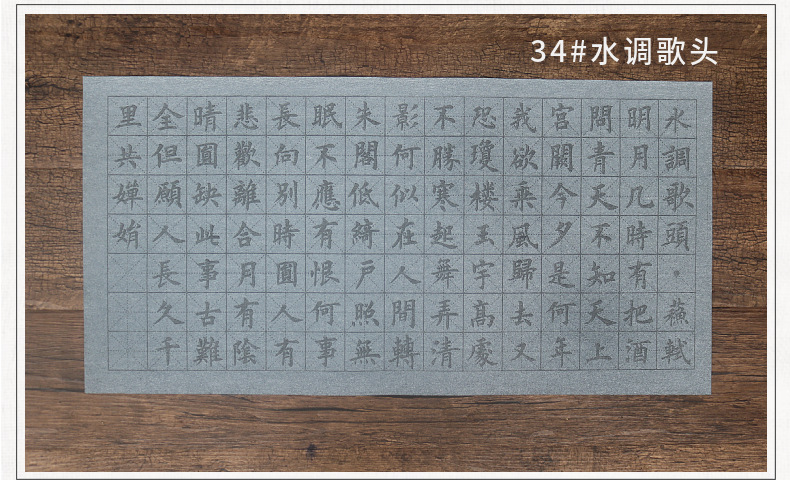 34#水调歌头
水調歌頭·蘇軾
明月几時有把酒
問青天不知天上
宮闕今夕是何年
我欲乘風歸去又
恐瓊楼玉宇高處
不勝寒起舞弄清
影何似在人間轉
朱閣低綺戶照無
眠不應有恨何事
長向別時圓人有
悲歡離合月有陰
晴圓缺此事古難
全但願人長久千
里共嬋娟